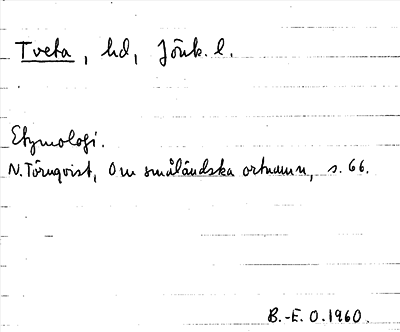 Tveta, hd, Jönk. l.
Etymologi.
N. Törnqvist, Om småländska ortnamn, s. 66.
B.-E. O. 1960.